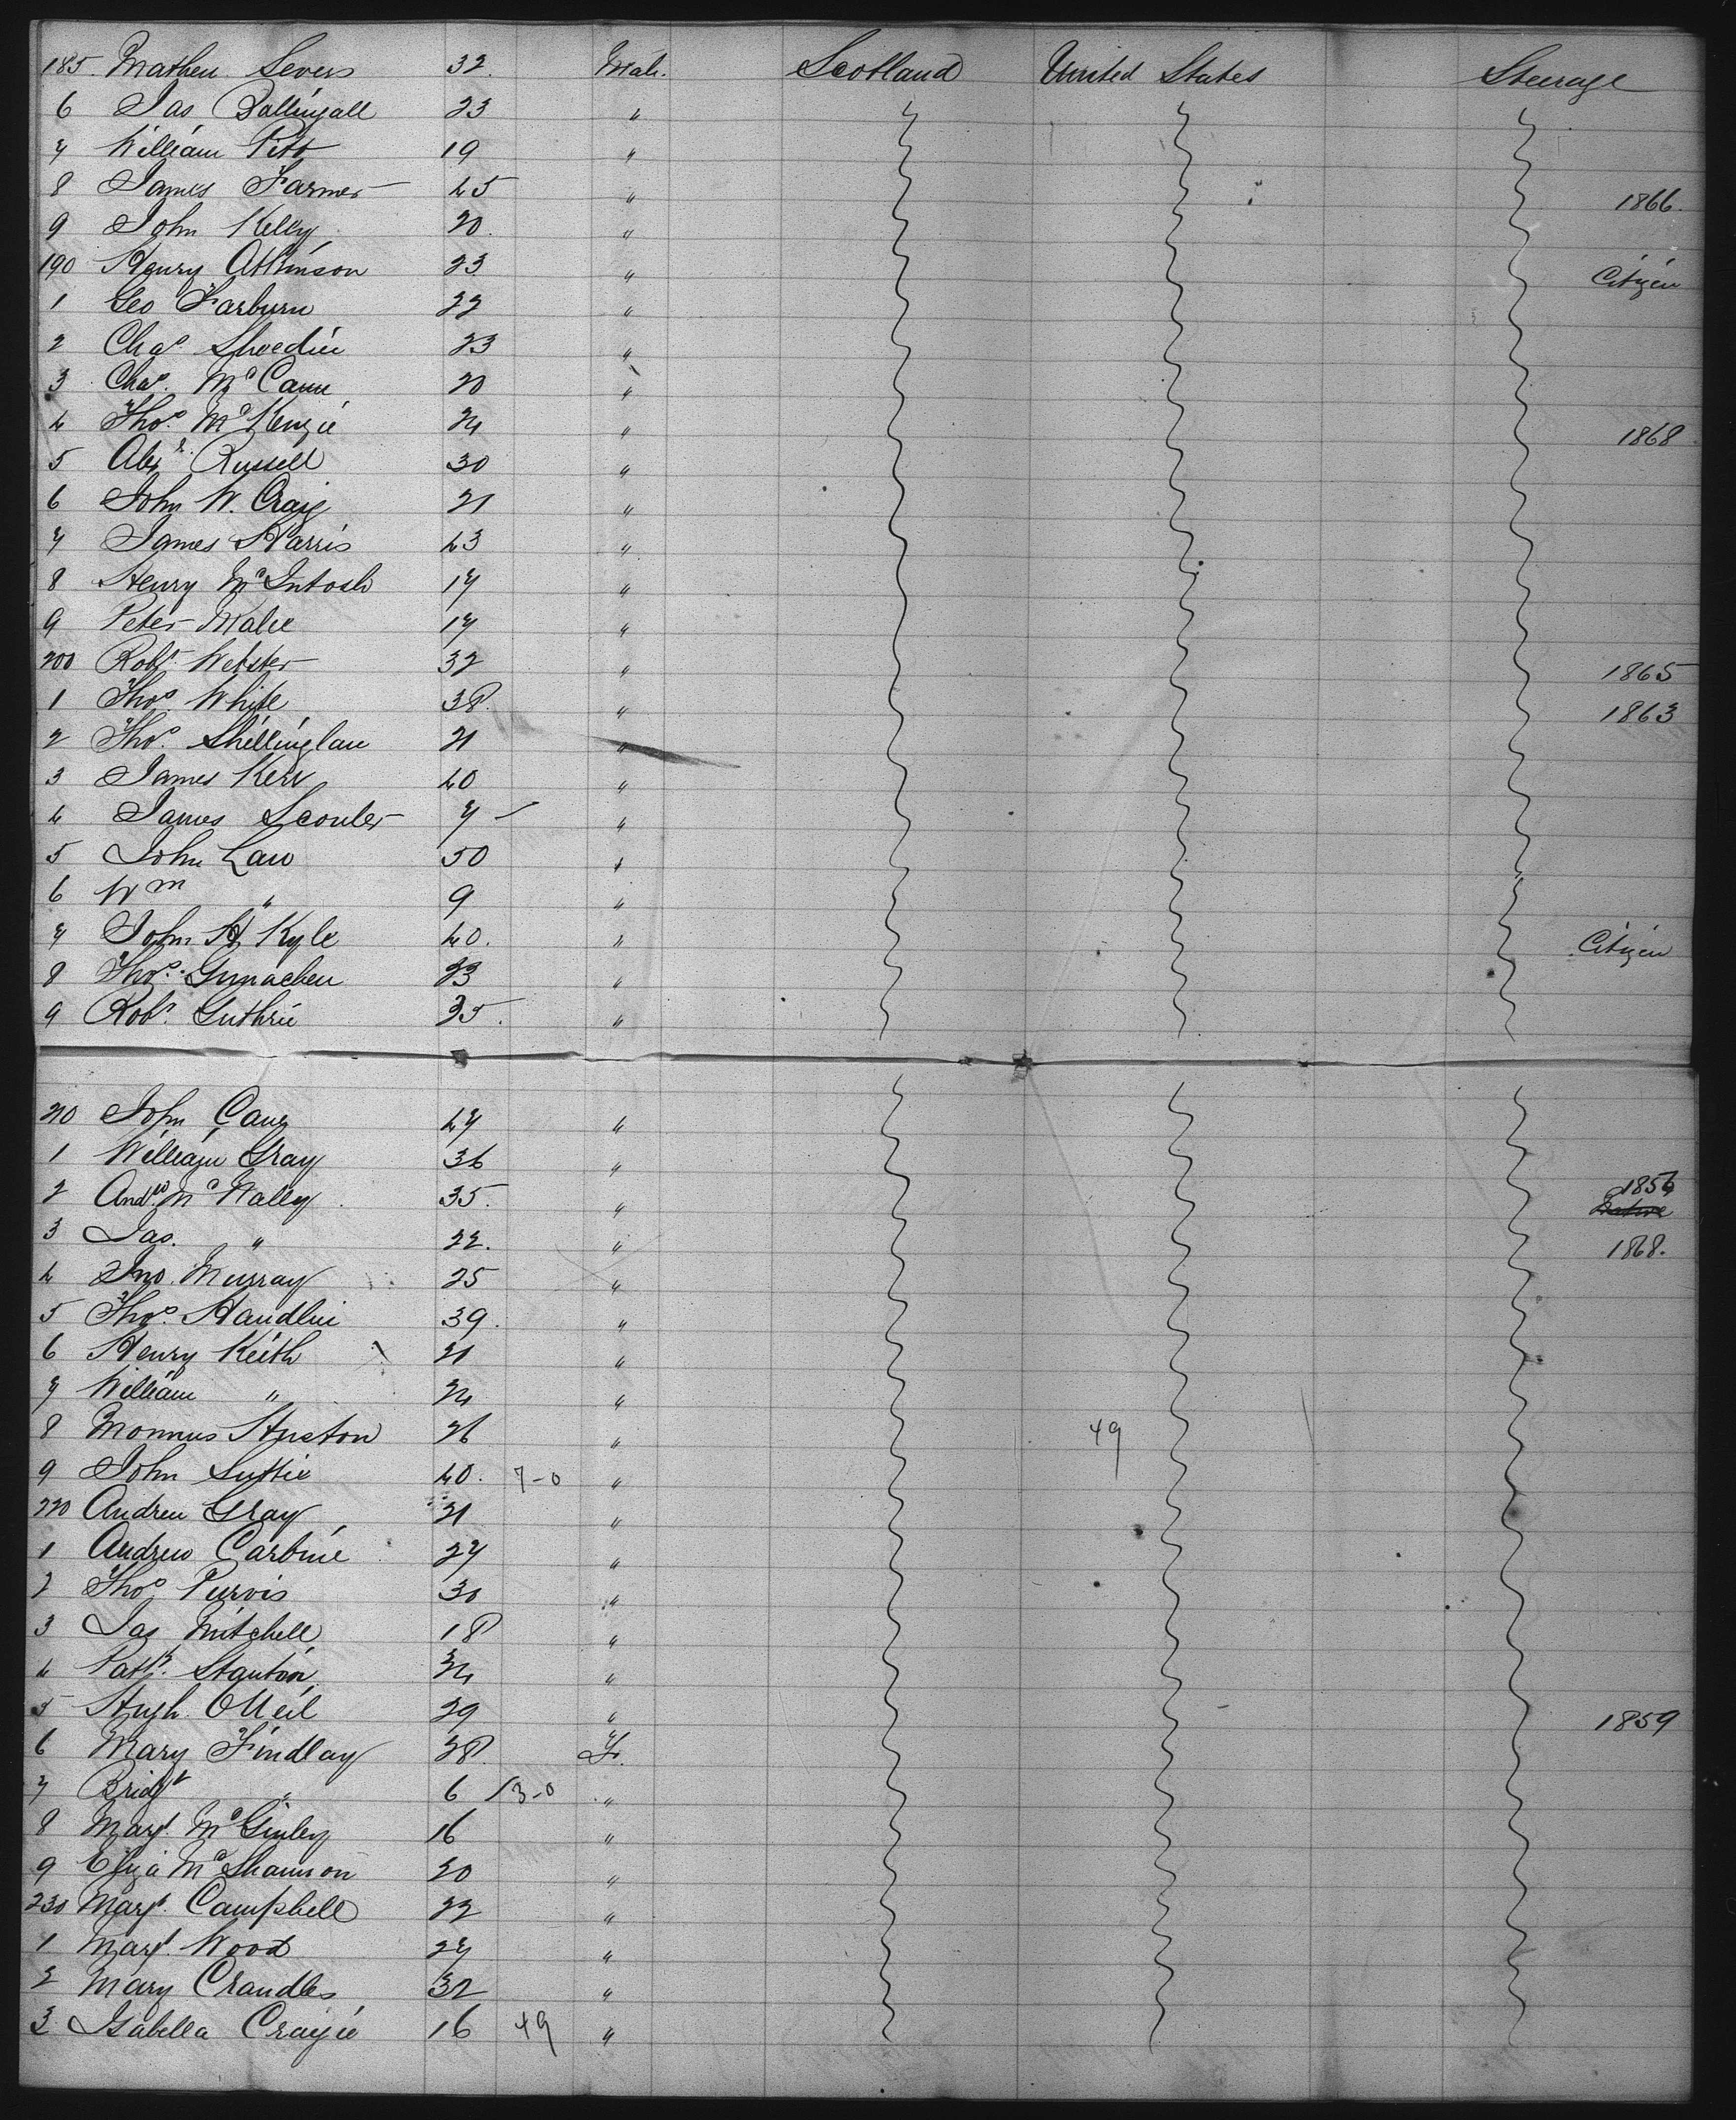 185. Mathew Severs 32. Male. Scotland United States Steerage
6 Jas Ballingall 23 "
7 William Pitt 19 "
8 James Farmer 45 " 1866.
9 John Kelly 20. "
190 Henry Atkinson 23 " Citizen
1 Geo Fairburn 22 "
2 Chas 23 "
3 Chas. McCann 20 "
4 Thos. McKenzie 24 " 1868
5 Alexr. Russell 30 "
6 John W. Craig 21 "
7 James Harris 43 "
8 Henry McIntosh 17 "
9 Peter 17 "
200 Robt. Webster 32 " 1865
1 Thos. White 38. " 1863
2 Thos. Shillinglaw 21 "
3 James Kerr 40 "
4 James Scouler 7 "
5 John Law 50 "
6 Wm " 9 "
7 John H Kyle 40. " Citizen
8 Thos. 23 "
9 Robt. Guthrie 35. "
210 John 47 "
1 William Gray 36 "
2 Andw. McNalley 35. " 1856
3 Jas. " 22. " 1868.
4 Jno. Murray 25 "
5 Thos. Handlin 39. "
6 Henry Keith 21 "
7 William " 24 "
8 Huston 26 " 49
9 John Suttie 40. 7-0 "
220 Andrew Gray 21 "
1 Andrew Carbine 27 "
2 Thos Purvis 30 "
3 Jas Mitchell 18 "
4 Patk. Stanton 24 "
5 Hugh ONeil 29 " 1859
6 Mary Findlay 38. F.
7 Bridgt " 6 13-0 "
8 Margt. McGinley 16 "
9 Eliza McShannon 20 "
230 Margt. Campbell 22 "
1 Margt Wood 27 "
2 Mary Crandles 32 "
3 Isabella Craigie 16 49 "